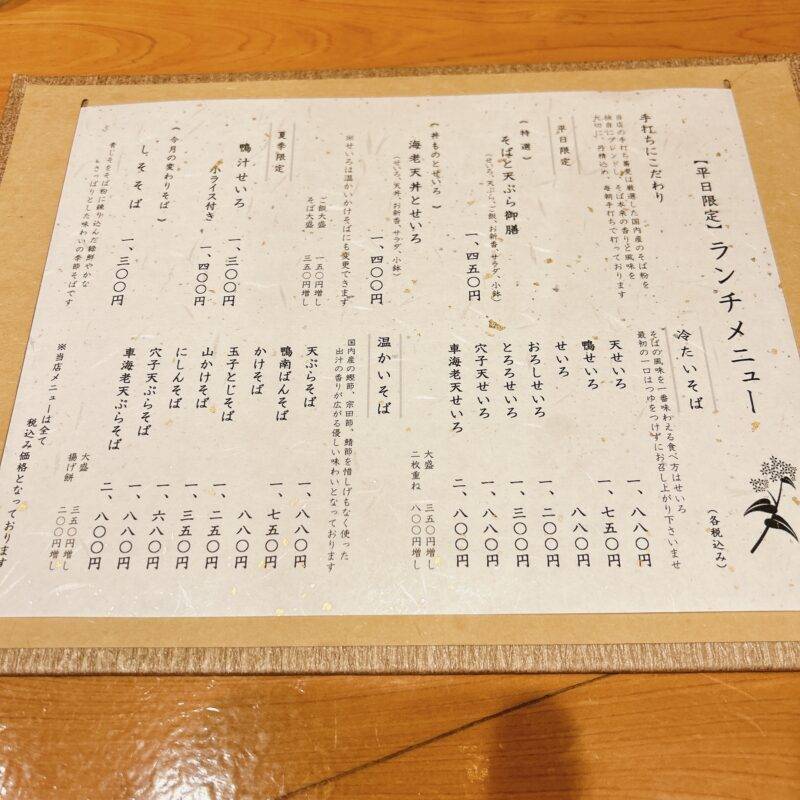 【平日限定】ランチメニュー
(各税込み)
手打ちにこだわり
当店の手打ち蕎麦は厳選した国内産のそば粉を
独自にブレンドし、そば本来の香りと風味を
大切に、丹精込め、毎朝手打ちで打っております
平日限定
(特選)
そばと天ぷら御膳 一、四五〇円
(せいろ、天ぷら、ご飯、お新香、サラダ、小鉢)
(丼ものとせいろ)
海老天丼とせいろ 一、四〇〇円
(せいろ、天丼、お新香、サラダ、小鉢)
※せいろは温かいかけそばにも変更できます
ご飯大盛 一五〇円増し
そば大盛 三五〇円増し
夏季限定
鴨汁せいろ 一、三〇〇円
小ライス付き 一、四〇〇円
(今月の変わりそば)
しそそば 一、三〇〇円
青じそをそば粉に練り込んだ緑鮮やかな
さっぱりとした味わいの季節そばです
冷たいそば
そばの風味を一番味わえる食べ方はせいろ
最初の一口はつゆをつけずにお召し上がり下さいませ
天せいろ 一、八八〇円
鴨せいろ 一、七五〇円
せいろ 一、〇〇〇円
おろしせいろ 一、二〇〇円
とろろせいろ 一、三〇〇円
穴子天せいろ 一、八八〇円
車海老天せいろ 二、八〇〇円
大盛 三五〇円増し
二枚重ね 八〇〇円増し
温かいそば
国内産の鰹節、宗田節、鯖節を惜しげもなく使った
出汁の香りが広がる優しい味わいとなっております
天ぷらそば 一、八八〇円
鴨南ばんそば 一、七五〇円
かけそば 一、〇〇〇円
玉子とじそば 一、二五〇円
山かけそば 一、三五〇円
にしんそば 一、六八〇円
穴子天ぷらそば 一、八八〇円
車海老天ぷらそば 二、八〇〇円
大盛 三五〇円増し
揚げ餅 二〇〇円増し
※当店メニューは全て
税込み価格となっております